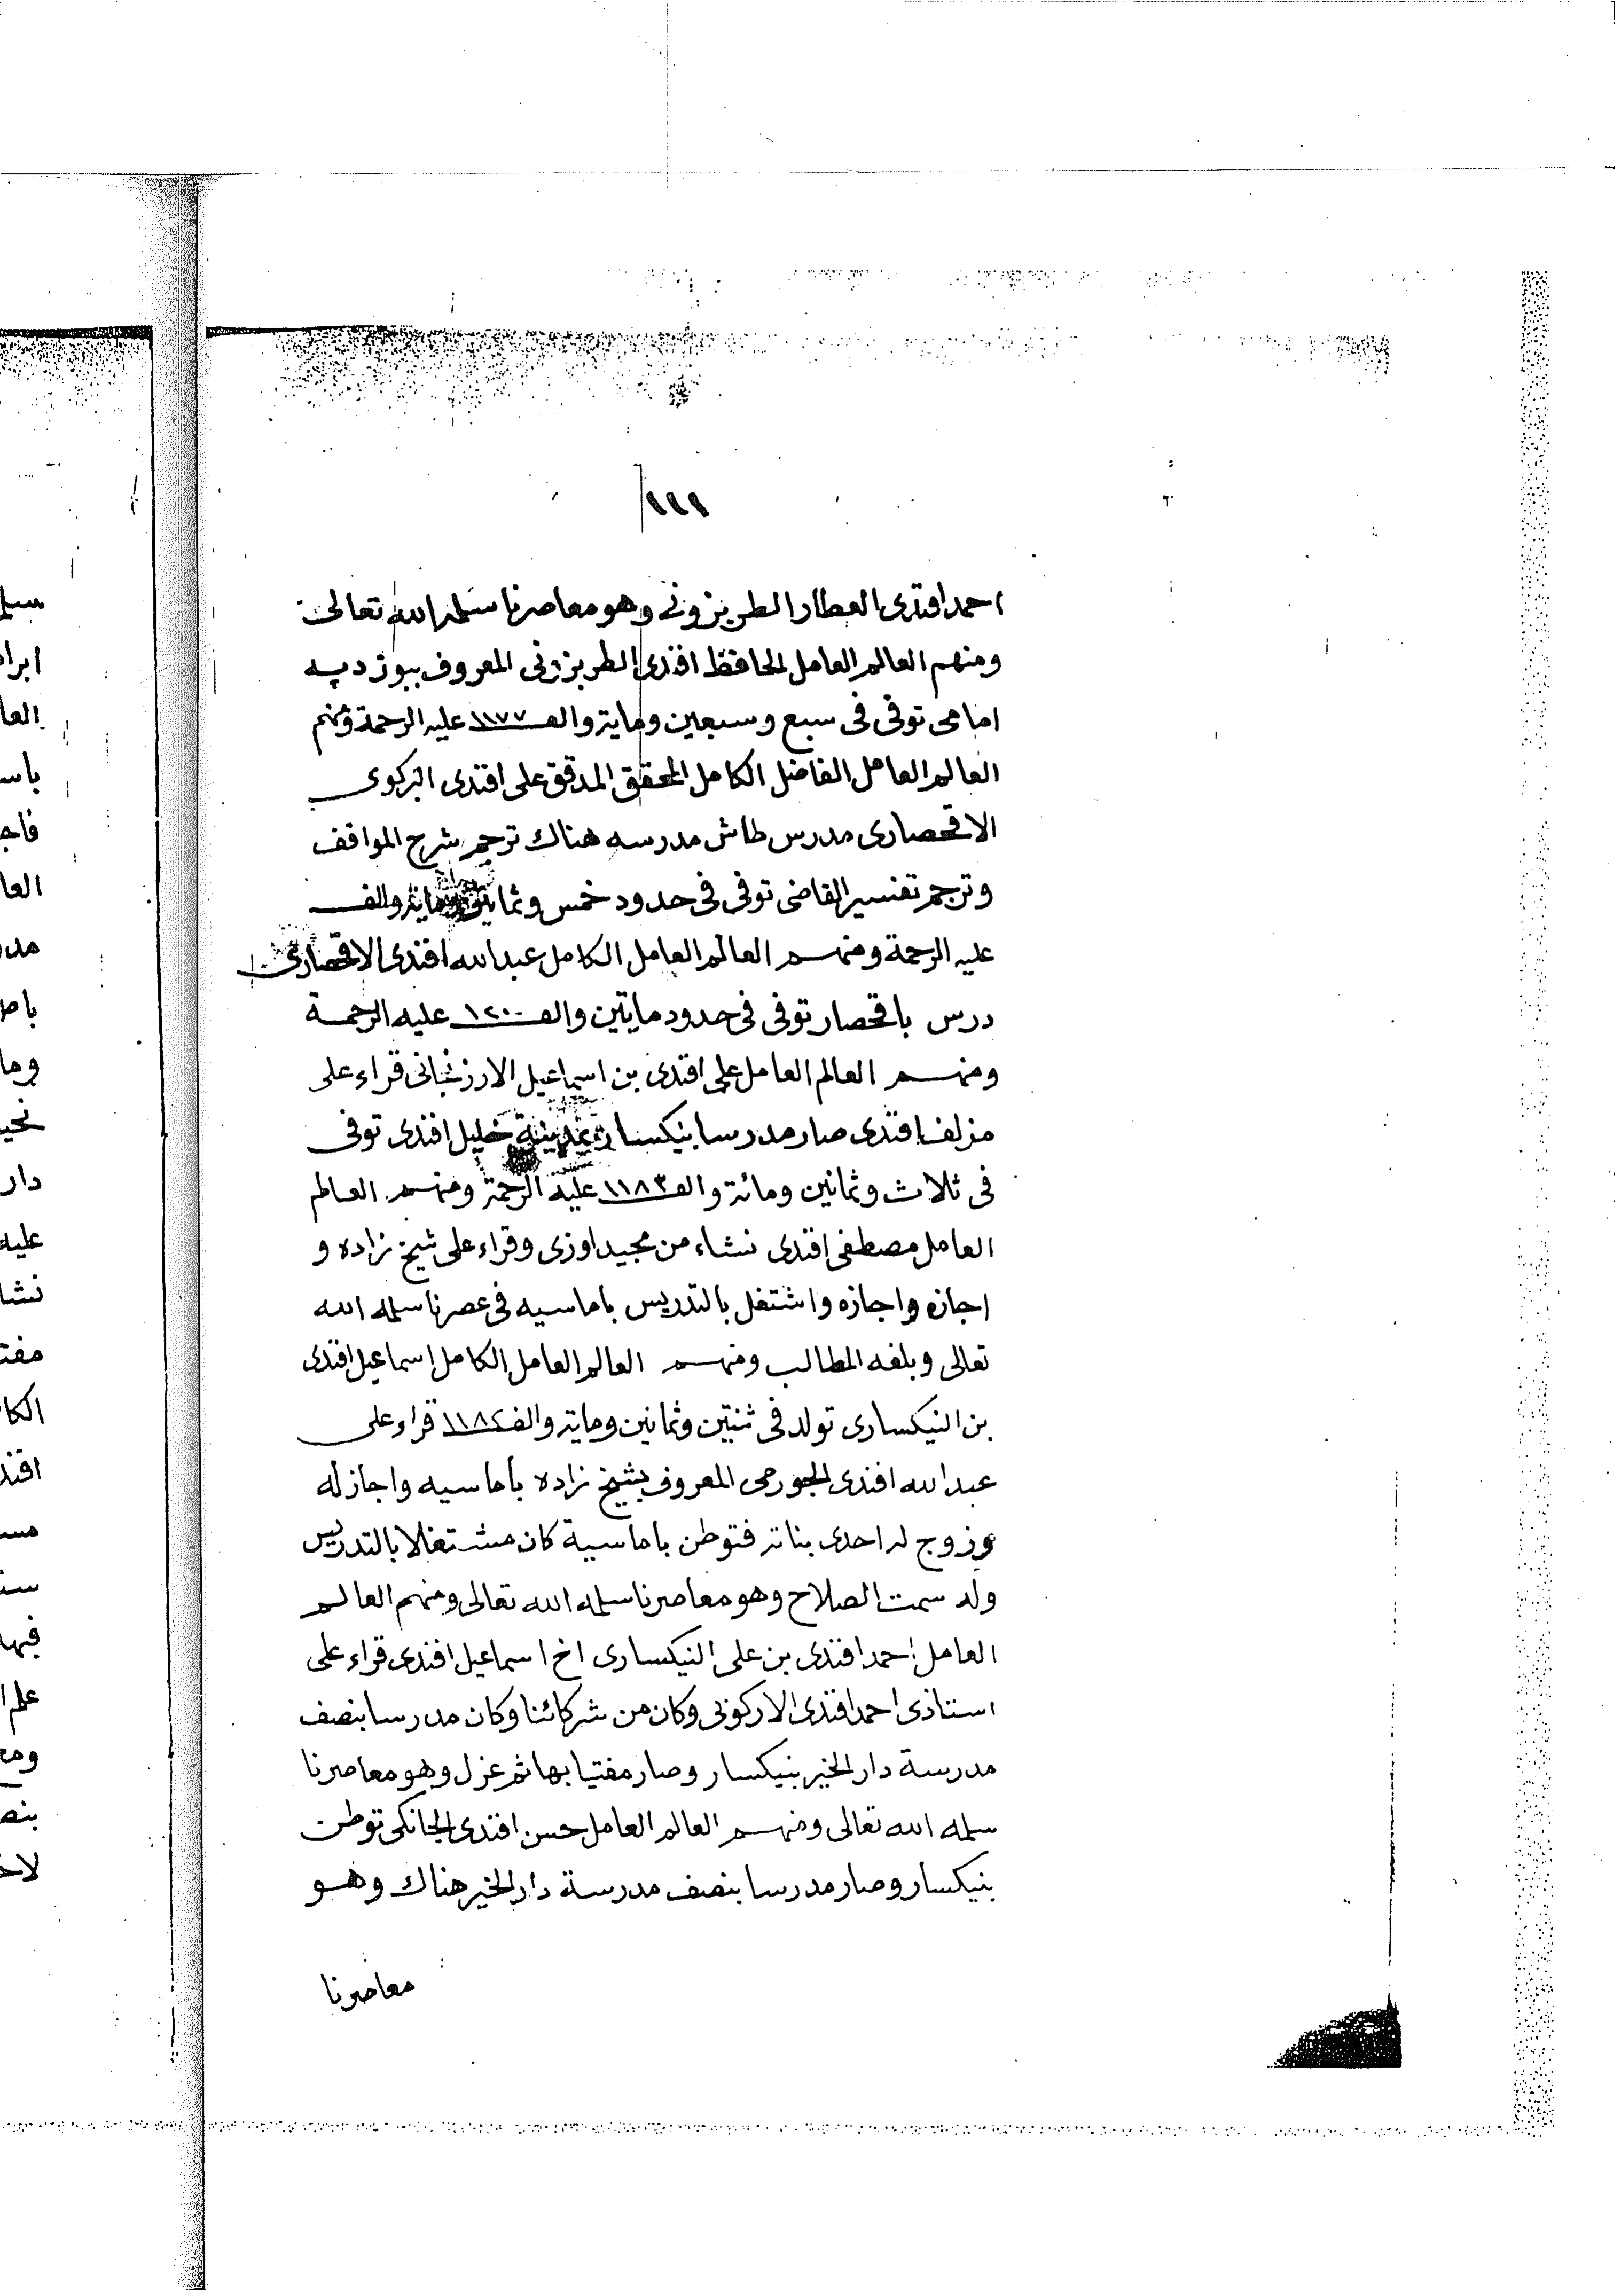 ١١١
احمد افندى العطار الطربزونى وهو معاصرنا سلمه الله تعالى
ومنهم العالم العامل الحافظ افندى الطربزونى المعروف ببوزدپه
امامى توفى فى سبع وسبعين وماية والف ١١٧٧ عليه الرحمة ومنهم
العالم العامل الفاضل الكامل المحقق المدقق على افندى البركوى
الاقحصارى مدرس طاش مدرسه هناك ترجم شرح المواقف
وترجم تفسير القاضى توفى فى حدود خمس وثمانين وماية والف
عليه الرحمة ومنهم العالم العامل الكامل عبد الله افندى الاقحصارى
درس باقحصار توفى فى حدود مايتين والف ١٢٠٠ عليه الرحمة
ومنهم العالم العامل على افندى بن اسماعيل الارزنجانى قراء على
مزلف افندى صار مدرسا بنيكسار بمدينة خليل افندى توفى
فى ثلاث وثمانين ومائة والف ١١٨٣ عليه الرحمة ومنهم العالم
العامل مصطفى افندى نشاء من مجيد اوزى وقراء على شيخ زاده و
اجازه واجازه واشتغل بالتدريس باماسيه فى عصرنا سلمه الله
تعالى وبلغه المطالب ومنهم العالم العامل الكامل اسماعيل افندى
بن النيكسارى تولد فى ثنتين وثمانين وماية والف ١١٨٢ قراء على
عبد الله افندى الجورمى المعروف بشيخ زاده باماسيه واجاز له
وزوج له احدى بناته فتوطن باماسية كان مشتغلا بالتدريس
وله سمت الصلاح وهو معاصرنا سلمه الله تعالى ومنهم العالم
العامل احمد افندى بن على النيكسارى اخ اسماعيل افندى قراء على
استاذى احمد افندى الاركوبى وكان من شركائنا وكان مدرسا بنصف
مدرسة دار الخير بنيكسار وصار مفتيا بها ثم عزل وهو معاصرنا
سلمه الله تعالى ومنهم العالم العامل حسن افندى الجانكى توطن
بنيكسار وصار مدرسا بنصف مدرسة دار الخير هناك وهو
معاصرنا